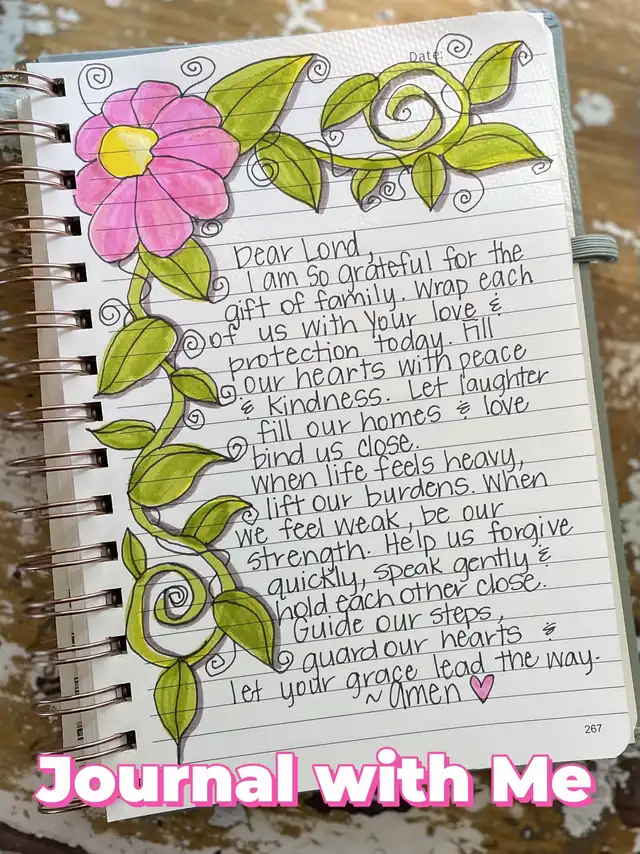 Date:
Dear Lord,
I am so grateful for the
gift of family. Wrap each
of us with Your love &
protection today. Fill
our hearts with peace
& kindness. Let laughter
fill our homes & love
bind us close.
When life feels heavy,
lift our burdens. When
we feel weak, be our
strength. Help us forgive
quickly, speak gently &
hold each other close.
Guide our steps,
guard our hearts &
let your grace lead the way.
~ amen
267
Journal with Me